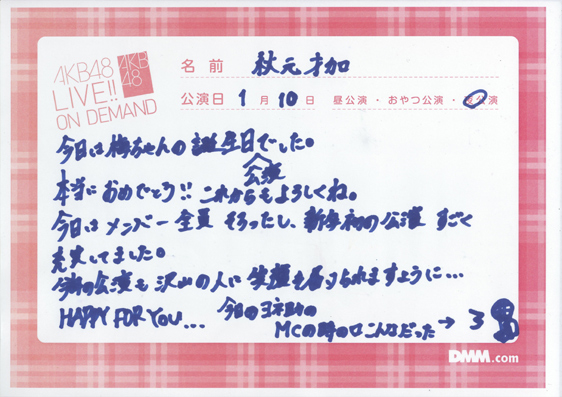 AKB48
LIVE!!
ON DEMAND
AKB
48
名前 秋元才加
公演日 1月10日 昼公演・おやつ公演・夜公演
今日は梅ちゃんの誕生日でした。
公演
本当におめでとう!! これからもよろしくね。
今日はメンバー全員そろったし、新年初の公演 すごく
充実してました。
今期の公演も沢山の人に笑顔を届けられますように…
HAPPY FOR YOU... 今日の
MCの時の口こんなだった→ 3
DMM.com